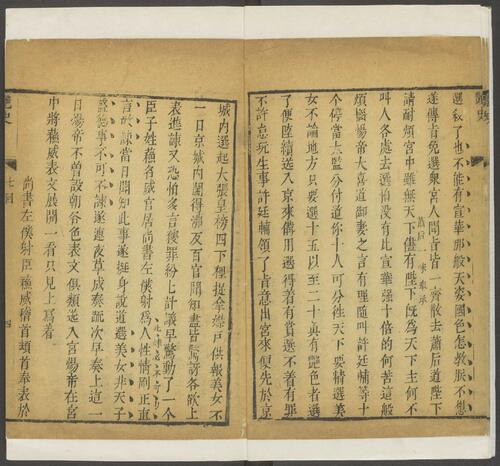 選殺了也不能有宣華那般天姿國色怎教朕不想
遂傳旨免選衆宮人聞旨皆一齊散去蕭后道陛下
請耐煩宮中雖無天下儘有陛下旣為天下主何不
叫人各處去選怕沒有此宣華强十倍的何苦這般
煩惱煬帝大喜道御妻之言有理隨叫許廷輔等十
個停當太監分付道你十人可分往天下要精選美
女不論地方只要選十五以至二十眞有艷色者選
了便陸續送入京來備用選得着有賞選不着有罪
不許怠玩生事許廷輔領了旨意出宮來便先於京
城內選起大張皇榜四下裡捉拿媒戶供報美女不
一日京城內鬧得沸反百官聞知盡皆驚訝各欲上
表進諫又恐怕多言獲罪紛紛計議早驚動了一個
臣子姓蘇名威官居尚書左僕射為人性情剛正直
言敢諫當日聞知此事遂挺身說道選美女非天子
盛德事不可不諫遂連夜草成奏疏次早奏上這一
日煬帝不曾設朝各色表文俱類送入宮煬帝在宮
中將蘇威表文展開一看只見上寫着
尚書左僕射臣蘇威稽首頓首奉表於
艷史
七囘
四